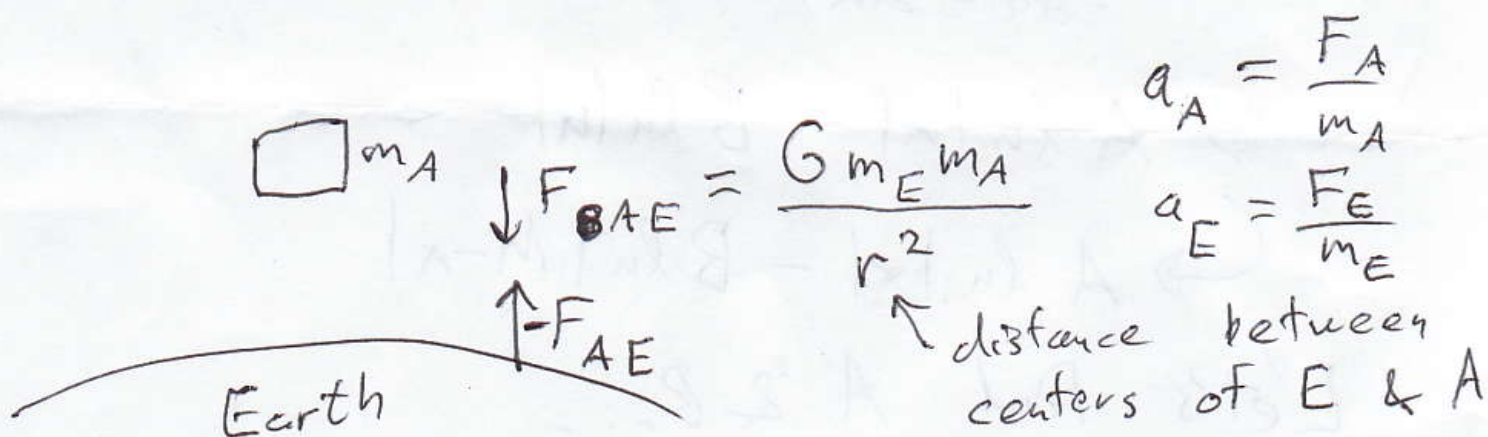 a_A = F_A / m_A
m_A
↓ F_AE = G m_E m_A / r²
a_E = F_E / m_E
↑ -F_AE
↖ distance between
centers of E & A
Earth